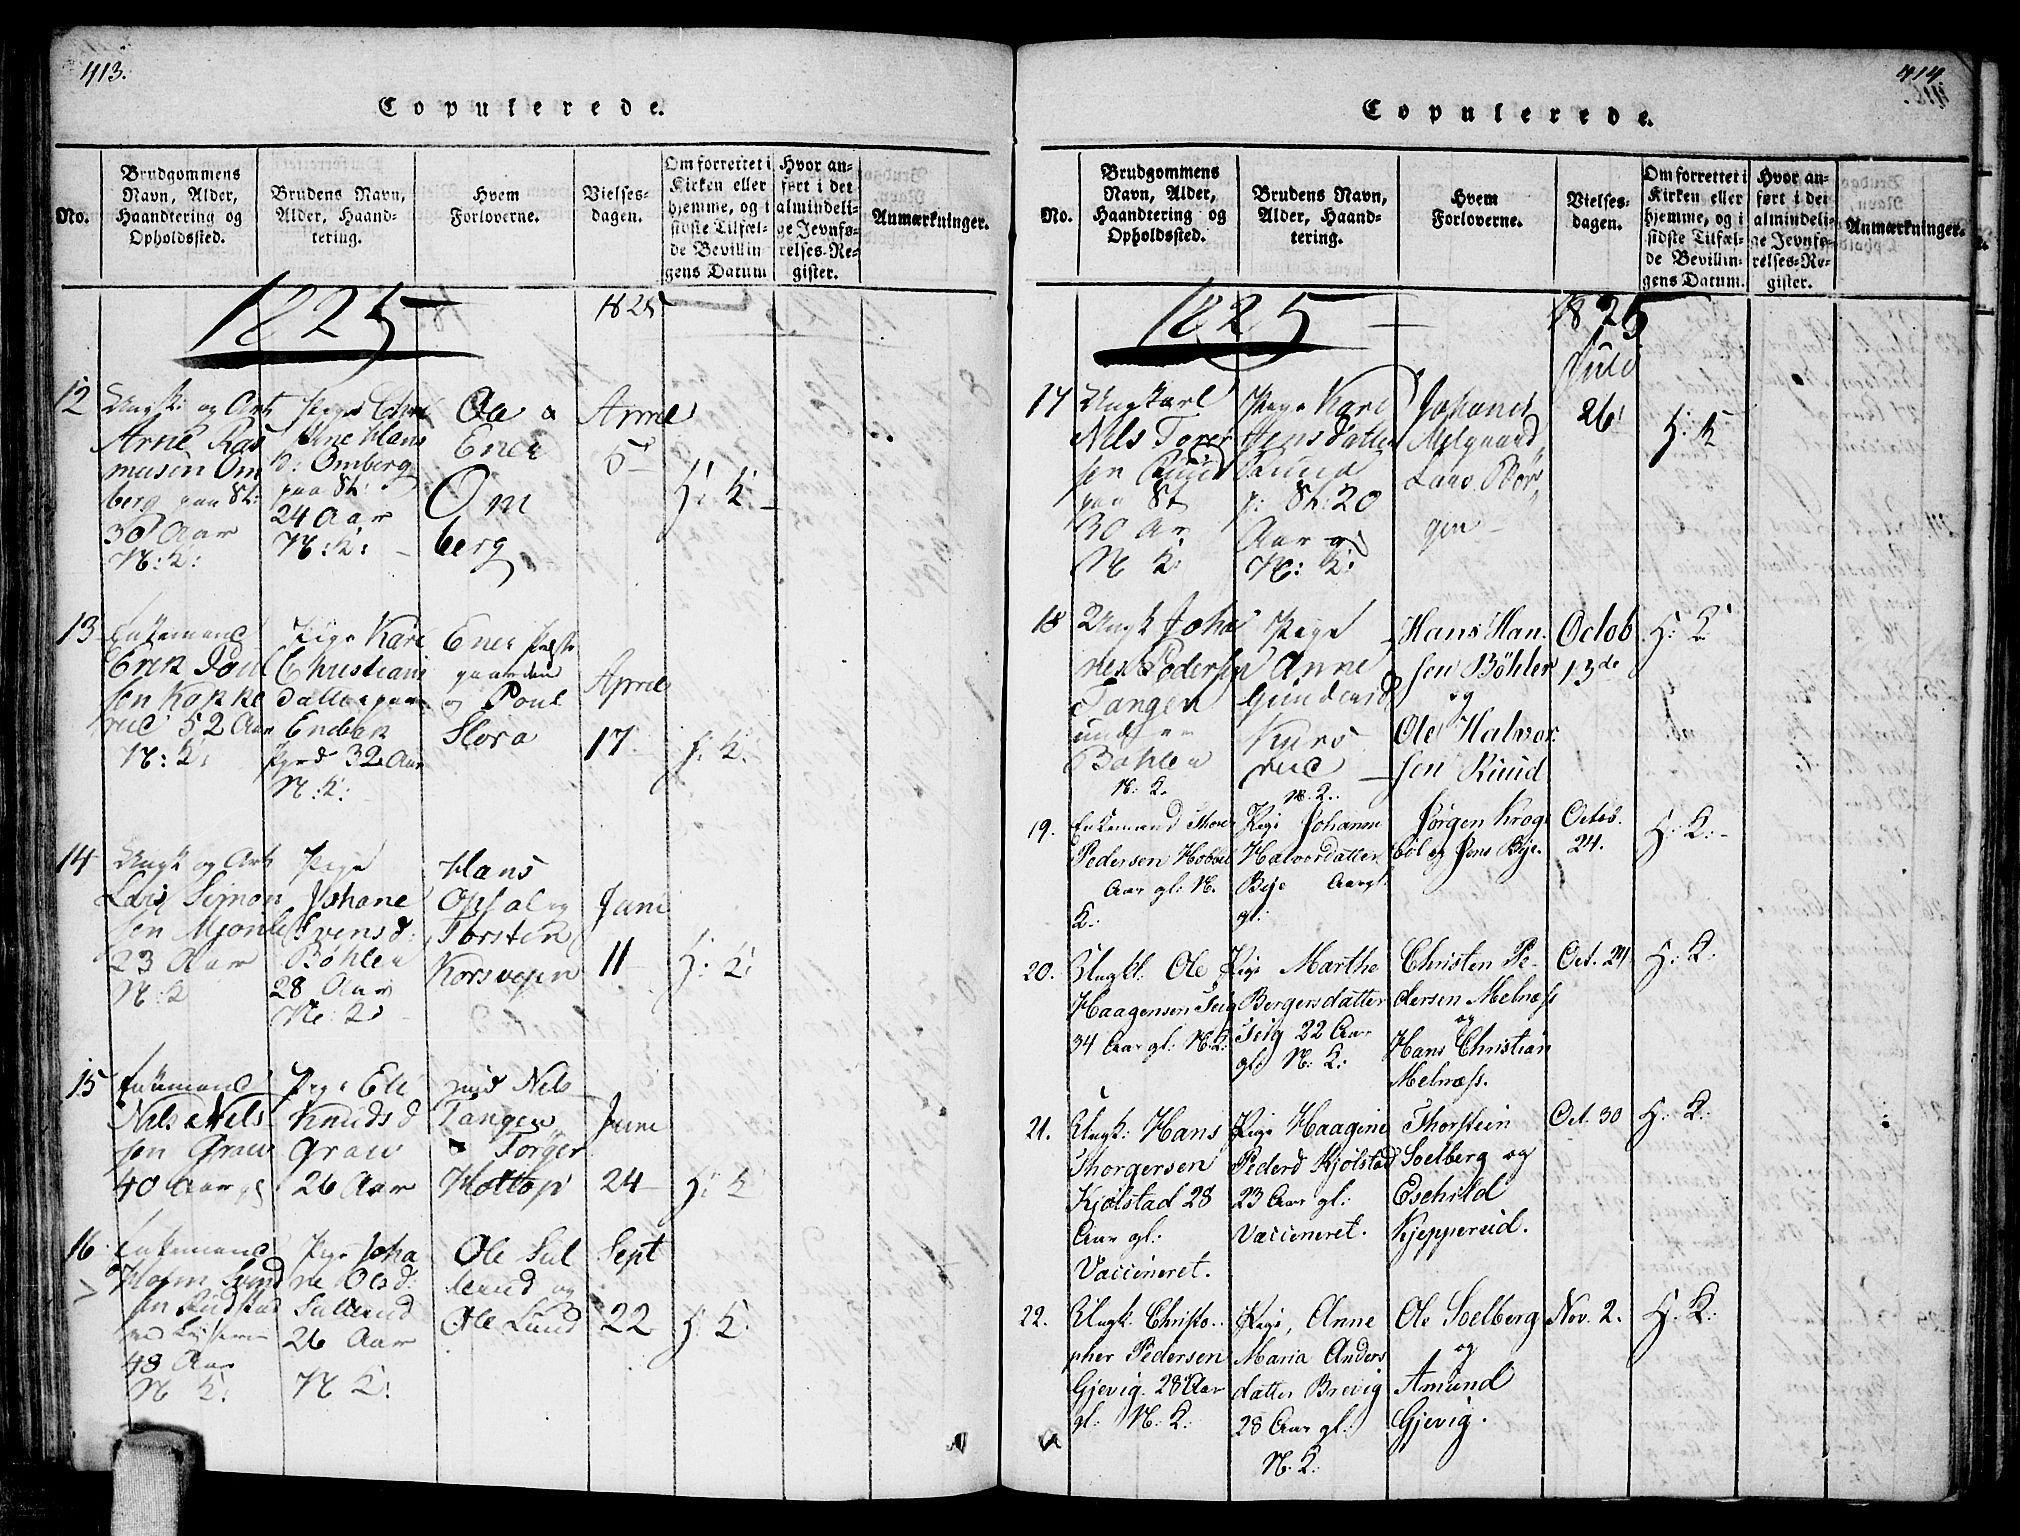 413.
Copulerede.
No.
Brudgommens
Navn, Alder,
Haandtering og
Opholdssted.
Brudens Navn,
Alder, Haand-
tering.
Hvem
Forloverne.
Vielses-
dagen.
Om forrettet i
Kirken eller
hjemme, og i
sidste Tilfæl-
de Bevillin-
gens Datum
Hvor an-
ført i det
almindeli-
ge Jevnfø-
relses-Re-
gister.
Anmærkninger.
1825
1825
12
Ungk: og
Arne Ras
musen Om
berg paa St:
30 Aar
N: K:
Pige
Hans
d: Omberg
paa St:
24 Aar
N: K:
Ole &
Ener
Om
berg
Aprile
5
H: K:
13
Enkemand
Erik Poul
sen Kopke
rud 52 Aar
N: K:
Pige Kari
Christians
datter paa
32 Aar
N: K:
Ener
gaarden
og Poul
Slora
Aprile
17.
H: K:
14
Ungk og
Lars Simon
sen Mjonli
23 Aar
N: K
Pige
Johane
Svensd:
Bøhler
28 Aar
N: K:
Hans
Opsal og
Torsten
Korsvegen
Juni
11
H: K:
15
Enkemand
Nils Nels
sen Graw
40 Aar gl
Pige Eli
Knudsd
Graw
26 Aar
Nels
Tangen
& Torger
Hottop
Juni
24
H: K
16
Enkemand
48 Aar
N K:
Pige Joha
ne Olsd:
Sullund
26 Aar
N K:
Ole Sul
lund og
Ole Lund
Sept
22
H: K:
414.
Copulerede.
No.
Brudgommens
Navn, Alder,
Haandtering og
Opholdssted.
Brudens Navn,
Alder, Haand-
tering.
Hvem
Forloverne.
Vielses-
dagen.
Om forrettet i
Kirken eller
hjemme, og i
sidste Tilfæl-
de Bevillin-
gens Datum.
Hvor an-
ført i det
almindeli-
ge Jevnfø-
relses-Re-
gister.
Anmærkninger.
1825
1825
17
Ungkarl
Nils Torer
sen Ruud
paa St
30 Ar
N K:
Pige Kari
Jensdatter
Ruud
p: St: 20
Aar gl
N: K:
Johanes
Melgaard,
Lars Bør
gen
Juli
26
H: K
18
Ungk Joha
nes Pedersen
Tangen
under
Bøhler
N: K.
Pige
Anne
Kurs
rud
N. K.
Hans Han
sen Bøhler
og
Ole Halvor
sen Ruud
Octob
13de
H: K
19.
Enkemand Thore
Pedersen
Aar gl: N.
K:
Pige Johanne
Halvorsdatter
Bye Aar gl.
gl:
Jørgen Krog
bøl og Jens Bye.
Octob.
24.
H: K:
20.
Ungk: Ole
Haagensen Teig
34 Aar gl: N: K:
Pige Marthe
Bergersdatter
Teig 22 Aar
gl: N: K:
Christen Pe-
dersen Melnæss
og
Hans Christian
Melnæss.
Oct. 24
H: K:
21.
Ungk: Hans
Thorgersen
Kjølstad 28
Aar gl:
Vaccineret.
Pige Haagine
Pedersd Kjølstad
23 Aar gl:
Vaccineret.
Thorstein
Soelberg og
Eschild
Kjeppereid.
Oct. 30
H: K:
22.
Ungk: Christo-
pher Pedersen
Gjevig. 28 Aar
gl: N: K:
Pige, Anne
Maria Anders
datter Brevig
28 Aar gl:
N. K:
Ole Soelberg
og
Amund
Gjevig.
Nov. 2.
H: K: